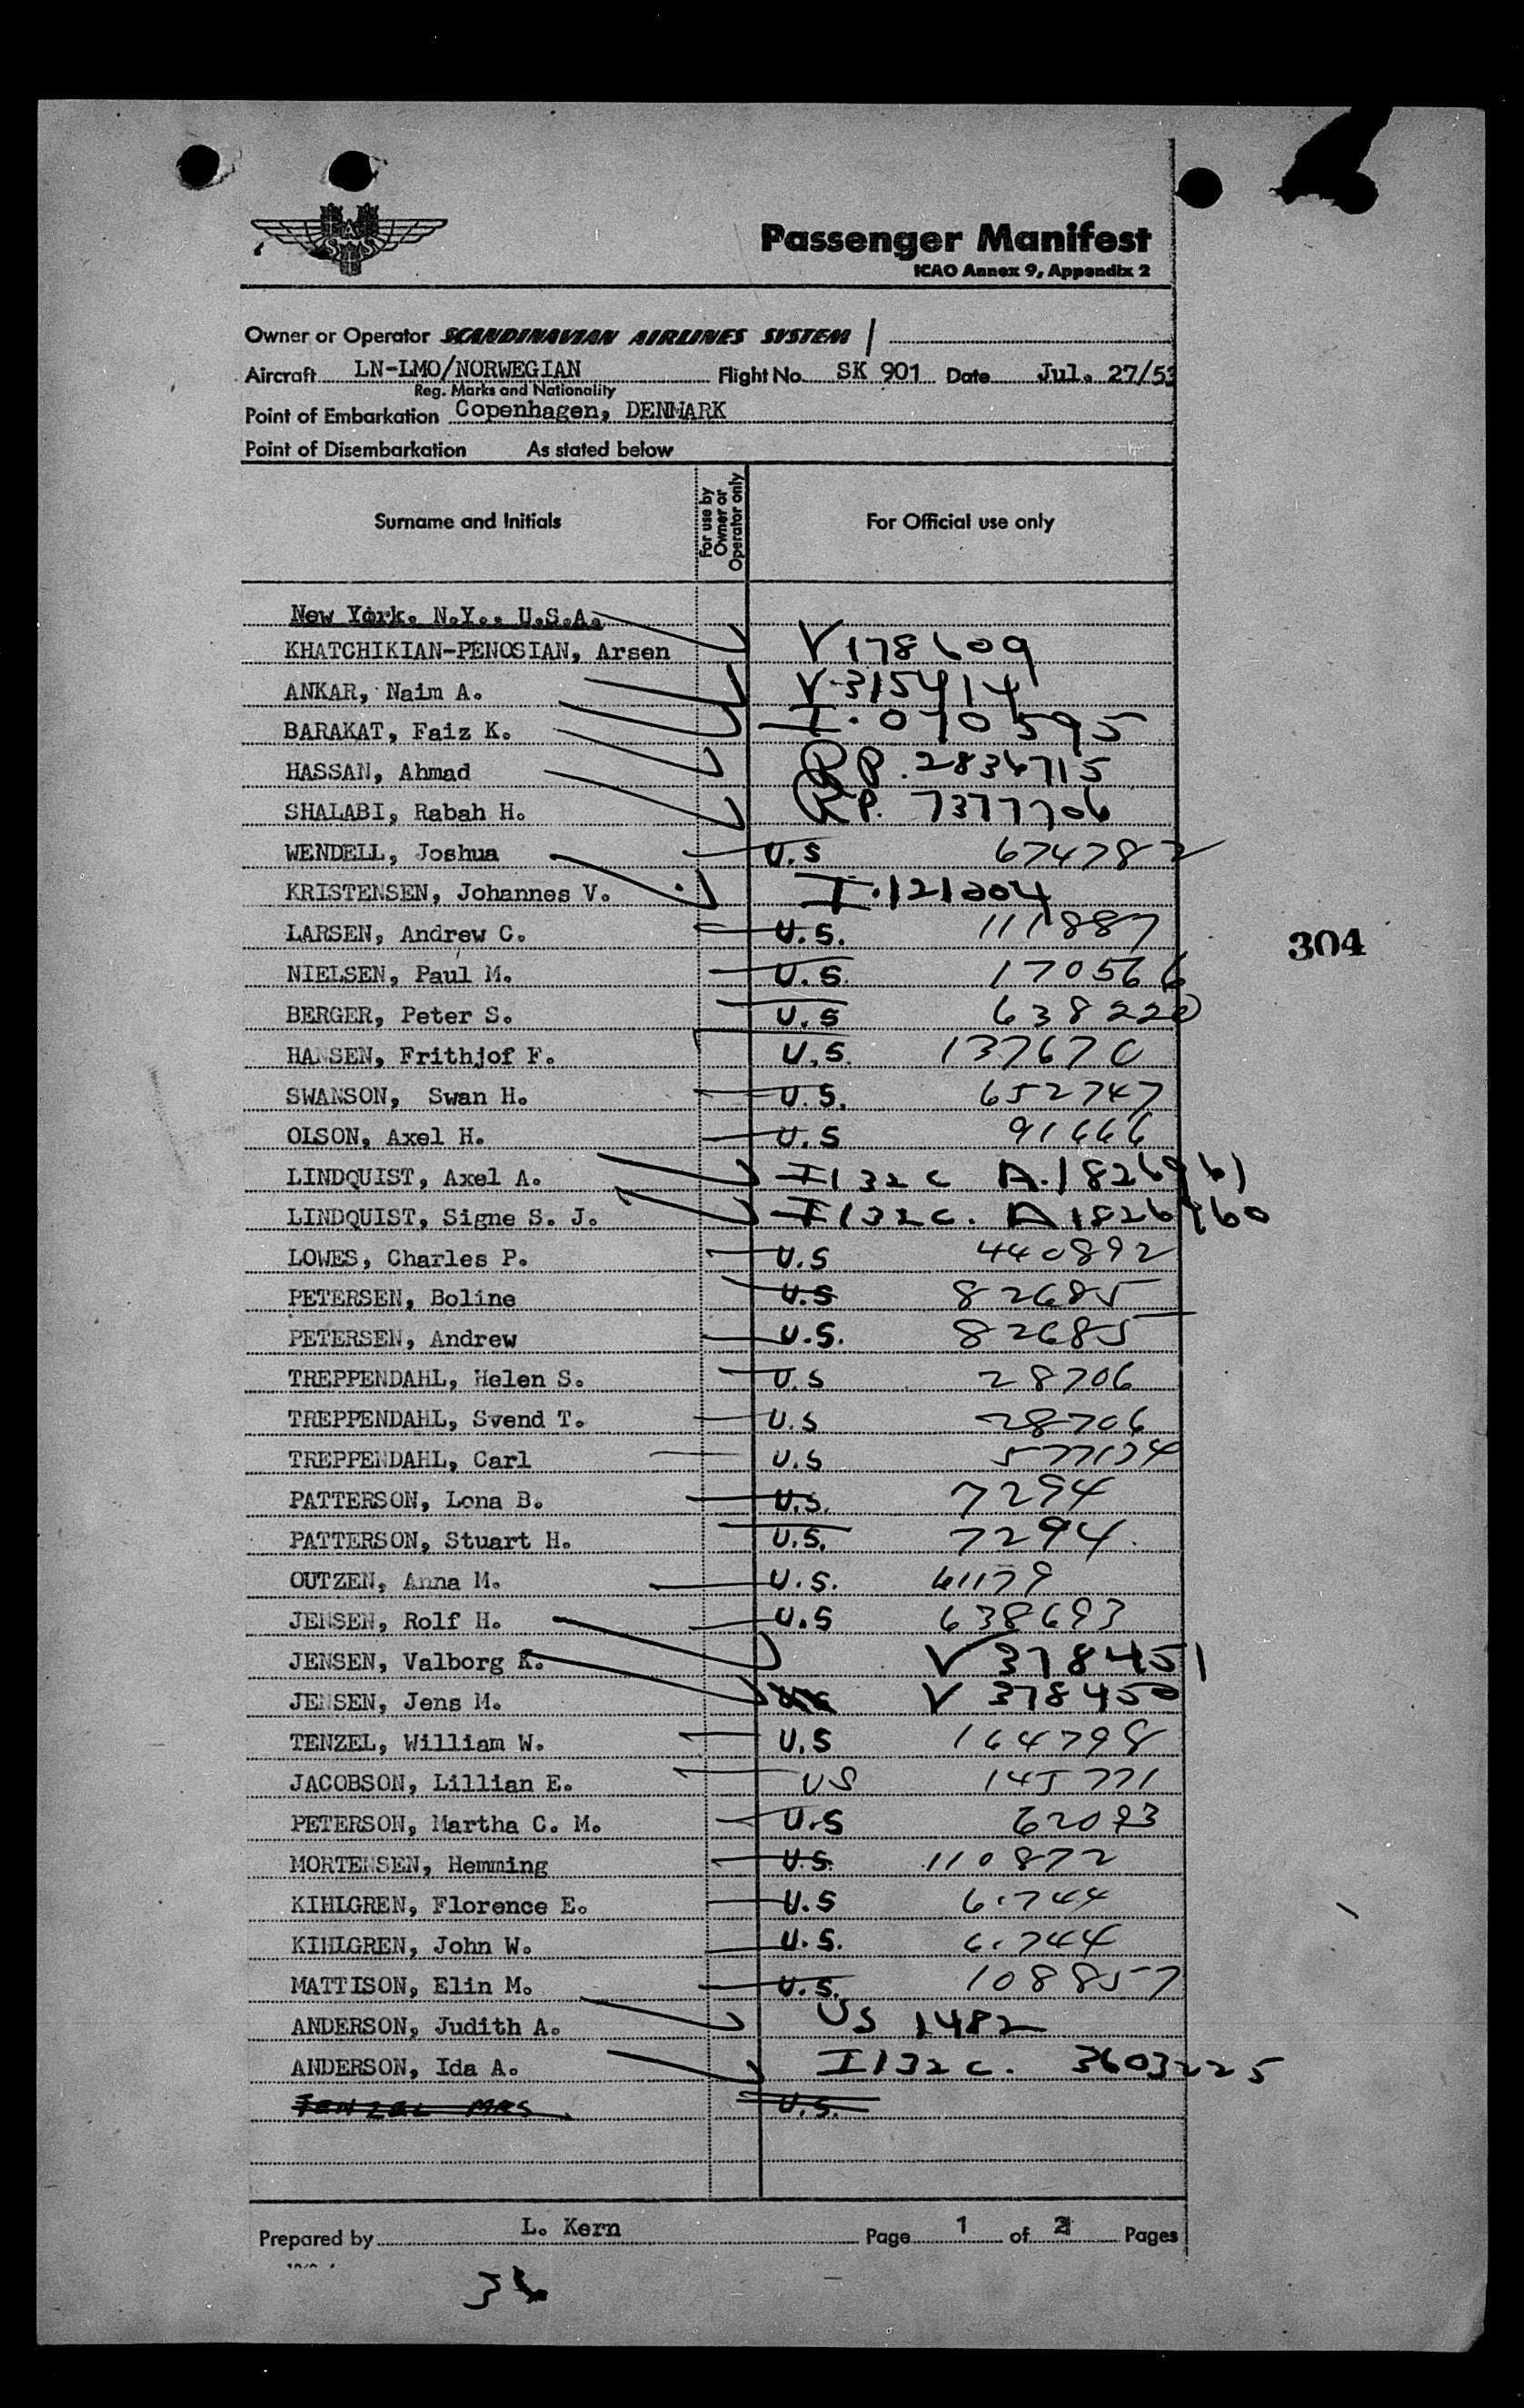 SAS
Passenger Manifest
ICAO Annex 9, Appendix 2
Owner or Operator SCANDINAVIAN AIRLINES SYSTEM
Aircraft LN-LMO/NORWEGIAN Flight No. SK 901 Date Jul. 27/53
Reg. Marks and Nationality
Point of Embarkation Copenhagen, DENMARK
Point of Disembarkation As stated below
Surname and Initials For use by Owner or Operator only For Official use only
New York, N.Y., U.S.A.
KHATCHIKIAN-PENOSIAN, Arsen V178609
ANKAR, Naim A. V-315414
BARAKAT, Faiz K. I.070595
HASSAN, Ahmad RP. 2836715
SHALABI, Rabah H. RP. 7377706
WENDELL, Joshua U.S 674782
KRISTENSEN, Johannes V. I.121204
LARSEN, Andrew C. U.S. 111887
NIELSEN, Paul M. U.S. 170566
BERGER, Peter S. U.S 638220
HANSEN, Frithjof F. U.S. 137670
SWANSON, Swan H. U.S. 652747
OLSON, Axel H. U.S 91666
LINDQUIST, Axel A. I132c A.1826961
LINDQUIST, Signe S. J. I132c. A1826960
LOWES, Charles P. U.S 440892
PETERSEN, Boline U.S 82685
PETERSEN, Andrew U.S. 82685
TREPPENDAHL, Helen S. U.S 28706
TREPPENDAHL, Svend T. U.S 28706
TREPPENDAHL, Carl U.S 577134
PATTERSON, Lona B. U.S. 7294
PATTERSON, Stuart H. U.S. 7294.
OUTZEN, Anna M. U.S. 61179
JENSEN, Rolf H. U.S 638693
JENSEN, Valborg K. V 378451
JENSEN, Jens M. V 378450
TENZEL, William W. U.S 164798
JACOBSON, Lillian E. US 145771
PETERSON, Martha C. M. U.S 62093
MORTENSEN, Hemming U.S. 110872
KIHLGREN, Florence E. U.S 61744
KIHLGREN, John W. U.S. 61744
MATTISON, Elin M. U.S. 108857
ANDERSON, Judith A. US 1482
ANDERSON, Ida A. I132c. 3603225
TENZEL MRS U.S.
304
Prepared by L. Kern Page 1 of 2 Pages
36